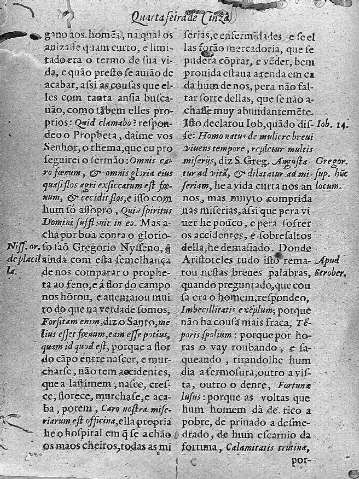 Quarta feira de Cinza.
gano aos homẽs, na qual os
anizade quam curto, e limi-
tado era o termo de sua vi-
da, e quão presto se auião de
acabar, assi as cousas que el-
les com tanta ansia busca-
não, como tãbem elles pro-
prios: Quid clamabo? respon-
deo o Propheta, daime vos
Senhor, o thema, que eu pro
seguirei o sermão: Omnis ca-
ro fœnum, & omnis gloria eius
quasi flos agri exsiccatum est fœ-
num, & cecidit flos, e isso com
hum só assopro, Quia spiritus
Domini sufflauit in eo. Mas a-
cha por boa conta o glorio-
so são Gregorio Nysseno, q̃
ainda com esta semelhança
de nos comparar o prophe-
ta ao feno, e à flor do campo
nos hõrou, e auentaiou mui
to do que na verdade somos,
Forsitam enim, diz o Santo, me
lius esset fœnum, eam esse potius,
quam id quod est, porque a flor
do cãpo entre nascer, e mur-
charse, não tem accidentes,
que a lastimem, nasce, cres-
ce, florece, murchase, e aca-
ba, porem, Caro nostra mise-
riarum est officina, ella propria
he o hospital em q̃ se achão
os maos cheiros, todas as mi
Niss. or.
de placil
la.
sérias, e enfermidades e se el
las forão mercadoria, que se
pudera cõprar, e vẽder, bem
prouida estaua a renda em ca
da hum de nos, pera não fal-
tar sorte dellas, que se não a-
chasse muy abundantemẽte.
Isto declarou Iob, quãdo dis-
se: Homo natus de muliere breui
viuens tempore, repletur multis
miserijs, diz S. Greg. Angusta-
tur ad vitã, & dilatatur ad mi-
seriam, he a vida curta nos an
nos, mas muyto comprida
nas miserias, assi que pera vi
uer he pouco, e pera sofrer
os accidentes, e sobresaltos
della, he demasiado. Donde
Aristoteles tudo isto rema-
tou nestas breues palabras,
quando preguntado, que cou
sa era o homem, respondeo,
Imbecillitatis exẽplum; porque
não ha cousa mais fraca, Tẽ-
poris spolium: porque por ho-
ras o vay roubando, e sa-
queando, tirandolhe hum
dia a fermosura, outro a vis-
ta, outro o dente, Fortunæ
lusus: porque as voltas que
hum homem dà de rico a
pobre, de prinado a desme-
drado, de hum escarnio da
fortuna,
por-
Iob. 14.
Gregor.
sup. hũc
locum.
Apud
Strober.